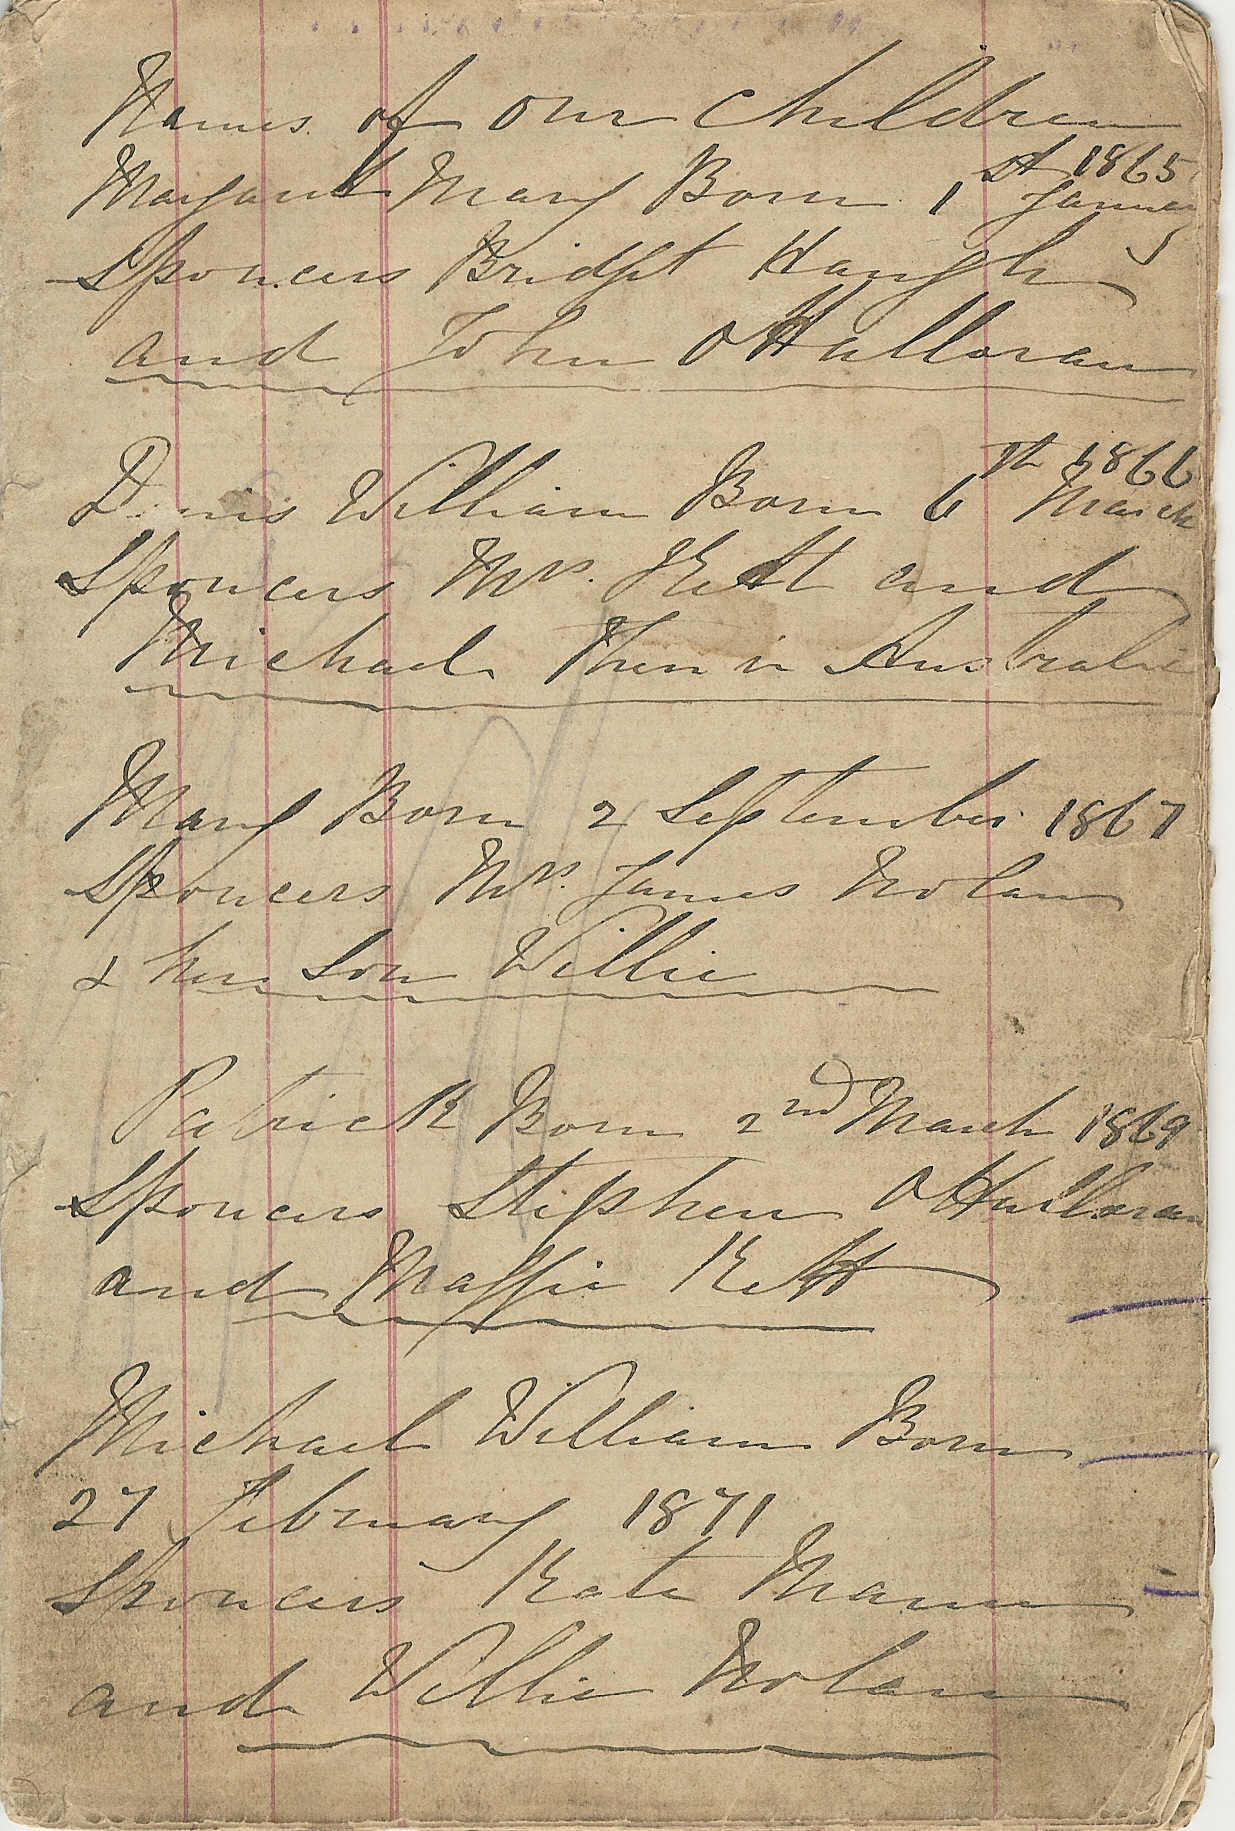 Names of our children
Margaret Mary Born 1st January 1865
Sponcers Bridget Haugh
and John OHalloran
Denis William Born 6th March 1866
Sponcers Mrs. Kett and
Michael Then in Australia
Mary Born 2 September 1867
Sponcers Mrs. James Nolan
& her Son Willie
Patrick Born 2nd March 1869
Sponcers Stephen OHalloran
and Maggie Kett
Michael William Born
27 February 1871
Sponcers Kate Mann
and Willie Nolan